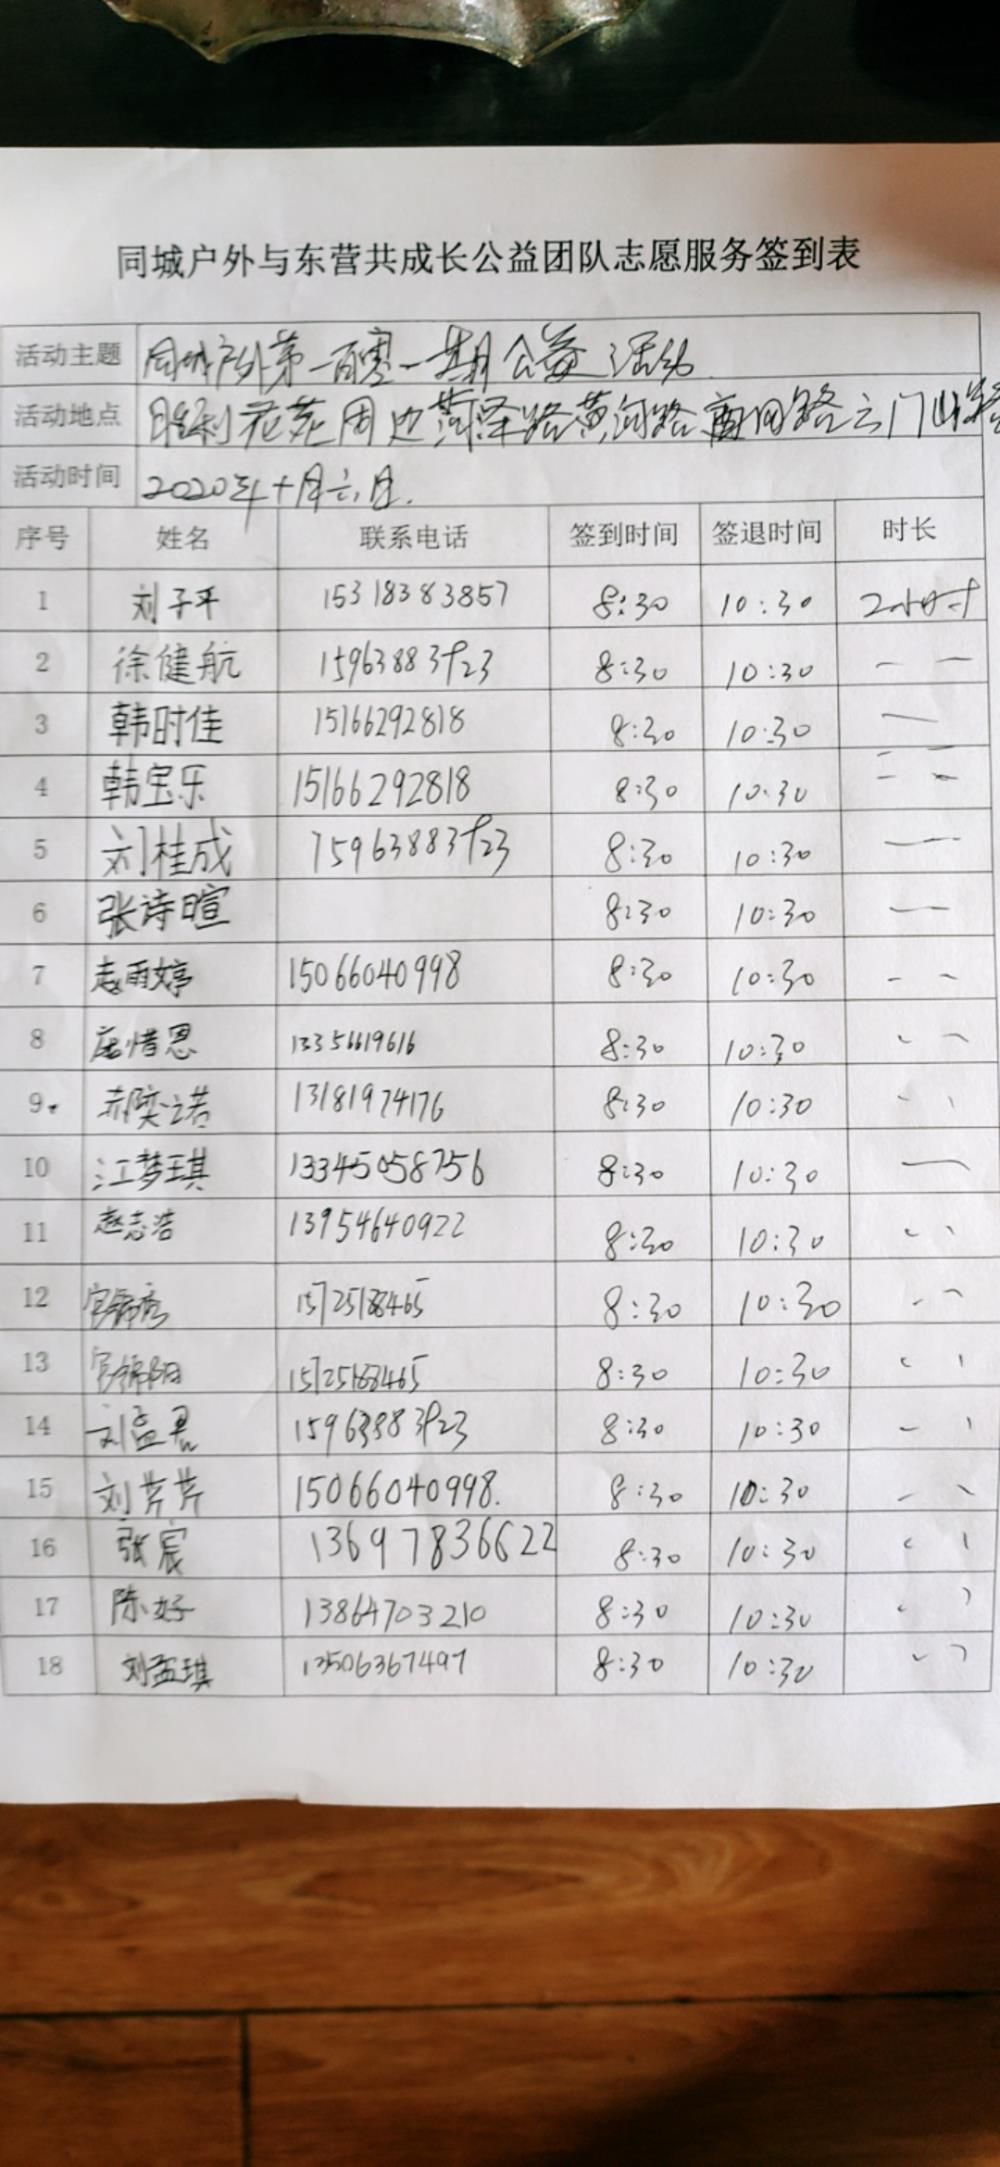 同城户外与东营共成长公益团队志愿服务签到表
活动主题 同城户外第一百零一期公益活动
活动地点 胜利花苑周边菏泽路黄河路 路云门山路
活动时间 2020年十月六日.
序号 姓名 联系电话 签到时间 签退时间 时长
1 刘子平 15318383857 8:30 10:30 2小时
2 徐健航 15963883923 8:30 10:30 — —
3 韩时佳 15166292818 8:30 10:30 —
4 韩宝乐 15166292818 8:30 10:30 — —
5 刘桂成 15963883923 8:30 10:30 —
6 张诗暄 8:30 10:30 —
7 赵雨婷 15066040998 8:30 10:30 — —
8 惜恩 13356619616 8:30 10:30
9 奕诺 13181974176 8:30 10:30
10 江梦琪 13345058756 8:30 10:30 —
11 赵志浩 13954640922 8:30 10:30
12 15725188465 8:30 10:30
13 15725188465 8:30 10:30
14 刘孟君 15963883923 8:30 10:30
15 刘芹芹 15066040998. 8:30 10:30
16 张宸 13697836622 8:30 10:30
17 陈好 13864703210 8:30 10:30
18 刘孟琪 13506367497 8:30 10:30